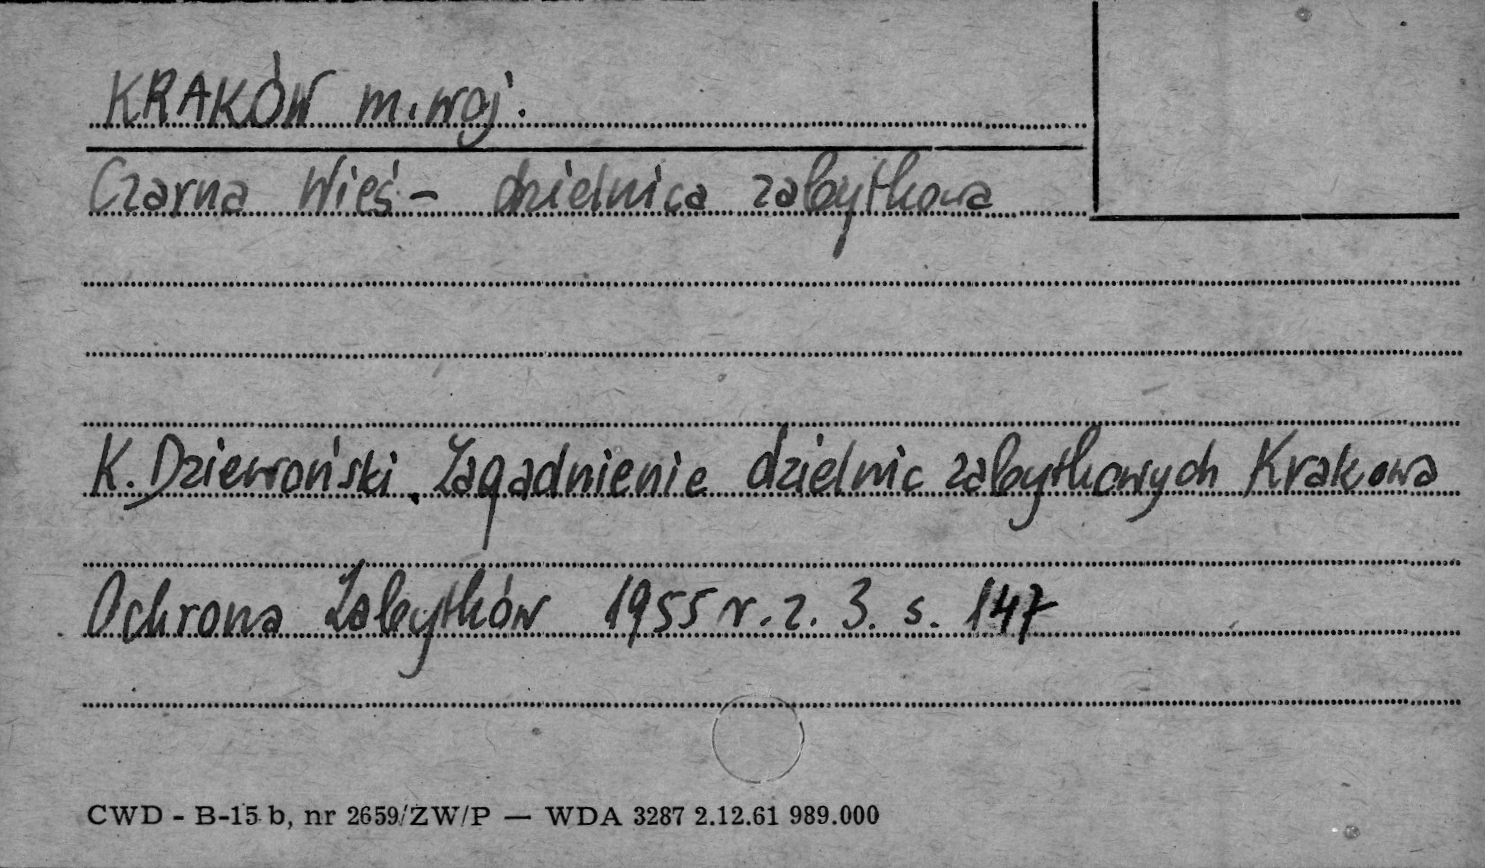 KRAKÓW m. woj.
Czarna Wieś - dzielnica zabytkowa
K. Dziewoński, Zagadnienie dzielnic zabytkowych Krakowa
Ochrona Zabytków 1955 r. z. 3. s. 147
CWD - B-15 b, nr 2659/ZW/P — WDA 3287 2.12.61 989.000